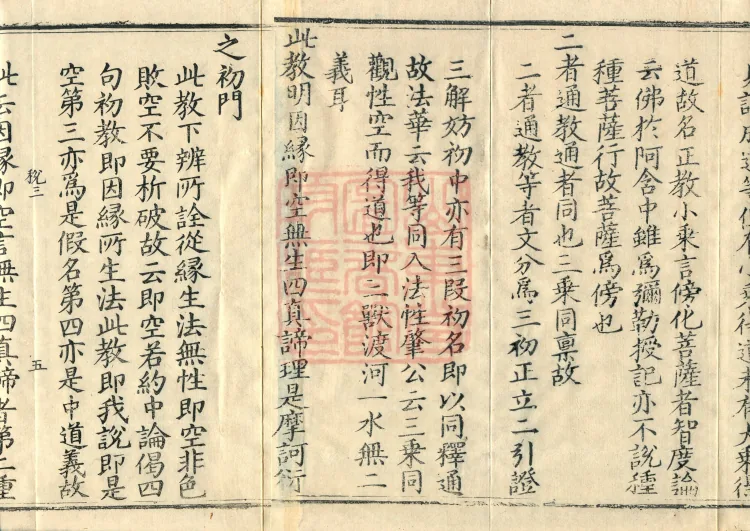 道故名正教小乘言傍化菩薩者智度論
云佛於阿含中雖為彌勒授記亦不說種
種菩薩行故菩薩為傍也
二者通教通者同也三乘同禀故
二者通教等者文分為三初正立二引證
三解妨初中亦有三段初名即以同釋通
故法華云我等同入法性肇公云三乘同
觀性空而得道也即三獸渡河一水無二
義耳
此教明因緣即空無生四真諦理是摩訶衍
之初門
此教下辨所詮從緣生法無性即空非色
敗空不要析破故云即空若約中論偈四
句初教即因緣所生法此教即我說即是
空第三亦為是假名第四亦是中道義故
稅三
五
此云因緣即空言無生四真諦者第二種